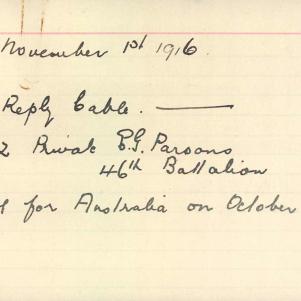 November 1st 1916.
Reply Cable.
2 Private E.G. Parsons
46th Battalion
for Australia on October